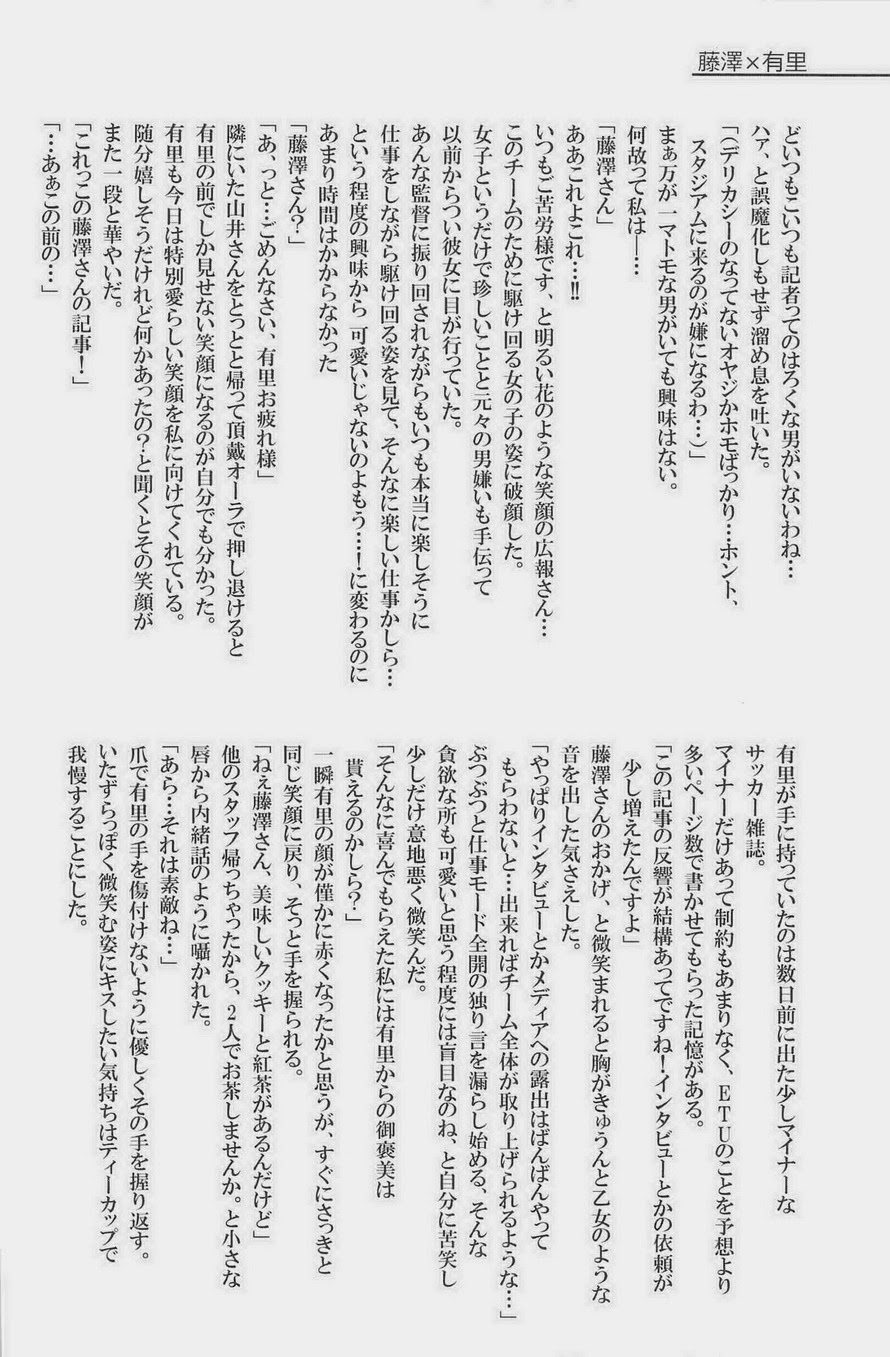 藤澤×有里
どいつもこいつも記者ってのはろくな男がいないわね…
ハァ、と誤魔化しもせず溜め息を吐いた。
「(デリカシーのなってないオヤジかホモばっかり…ホント、
スタジアムに来るのが嫌になるわ…)」
まぁ万が一マトモな男がいても興味はない。
何故って私は―…
「藤澤さん」
ああこれよこれ…!!
いつもご苦労様です、と明るい花のような笑顔の広報さん…
このチームのために駆け回る女の子の姿に破顔した。
女子というだけで珍しいことと元々の男嫌いも手伝って
以前からつい彼女に目が行っていた。
あんな監督に振り回されながらもいつも本当に楽しそうに
仕事をしながら駆け回る姿を見て、そんなに楽しい仕事かしら…
という程度の興味から 可愛いじゃないのよもう…!に変わるのに
あまり時間はかからなかった
「藤澤さん?」
「あ、っと…ごめんなさい、有里お疲れ様」
隣にいた山井さんをとっとと帰って頂戴オーラで押し退けると
有里の前でしか見せない笑顔になるのが自分でも分かった。
有里も今日は特別愛らしい笑顔を私に向けてくれている。
随分嬉しそうだけれど何かあったの?と聞くとその笑顔が
また一段と華やいだ。
「これっこの藤澤さんの記事!」
「…あぁこの前の…」
有里が手に持っていたのは数日前に出た少しマイナーな
サッカー雑誌。
マイナーだけあって制約もあまりなく、ETUのことを予想より
多いページ数で書かせてもらった記憶がある。
「この記事の反響が結構あってですね!インタビューとかの依頼が
少し増えたんですよ」
藤澤さんのおかげ、と微笑まれると胸がきゅうんと乙女のような
音を出した気さえした。
「やっぱりインタビューとかメディアへの露出はばんばんやって
もらわないと…出来ればチーム全体が取り上げられるような…」
ぶつぶつと仕事モード全開の独り言を漏らし始める、そんな
貪欲な所も可愛いと思う程度には盲目なのね、と自分に苦笑し
少しだけ意地悪く微笑んだ。
「そんなに喜んでもらえた私には有里からの御褒美は
貰えるのかしら?」
一瞬有里の顔が僅かに赤くなったかと思うが、すぐにさっきと
同じ笑顔に戻り、そっと手を握られる。
「ねえ藤澤さん、美味しいクッキーと紅茶があるんだけど」
他のスタッフ帰っちゃったから、2人でお茶しませんか。と小さな
唇から内緒話のように囁かれた。
「あら…それは素敵ね…」
爪で有里の手を傷付けないように優しくその手を握り返す。
いたずらっぽく微笑む姿にキスしたい気持ちはティーカップで
我慢することにした。